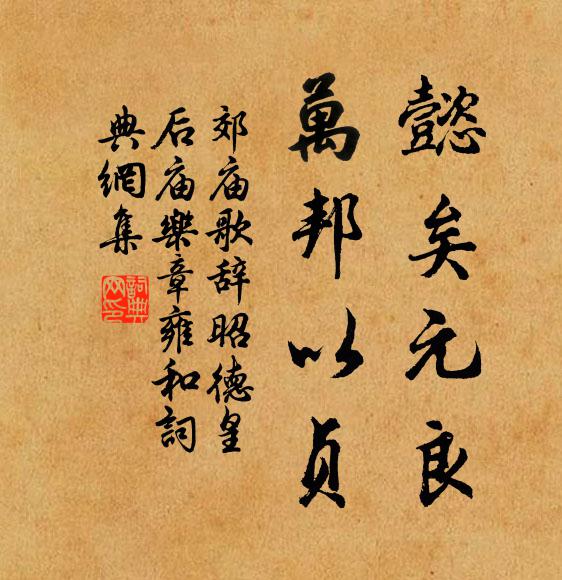 懿矣元良
萬邦以貞
郊庙歌辞昭德皇
后庙樂章雍和詞
典網集
詞典
网印